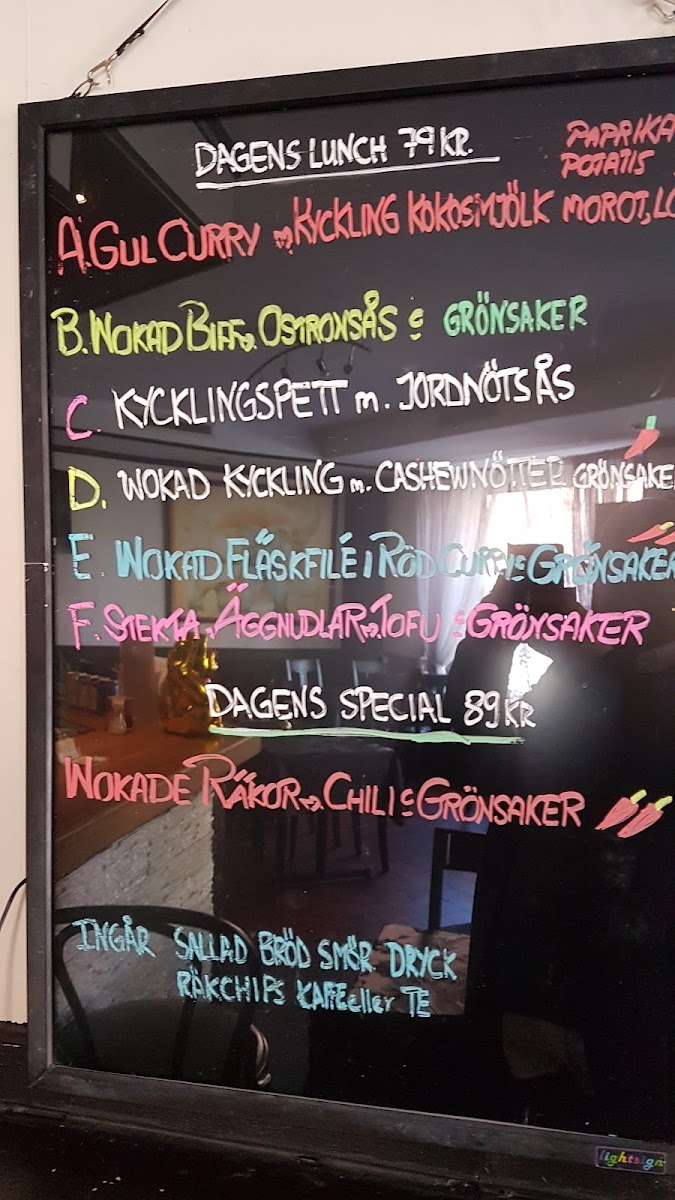 DAGENS LUNCH 79 KR.
PAPRIKA
POTATIS
A. GUL CURRY m KYCKLING KOKOSMJÖLK MOROT,
B. WOKAD BIFF m OSTRONSÅS & GRÖNSAKER
C. KYCKLINGSPETT m. JORDNÖTSÅS
D. WOKAD KYCKLING m. CASHEWNÖTTER GRÖNSAKE
E. WOKAD FLÄSKFILÉ I RÖD CURRY & GRÖNSAKER
F. STEKTA ÄGGNUDLAR m TOFU & GRÖNSAKER
DAGENS SPECIAL 89 KR
WOKADE RÄKOR m CHILI & GRÖNSAKER
INGÅR SALLAD BRÖD SMÖR DRYCK
RÄKCHIPS KAFFE eller TE
lightsign